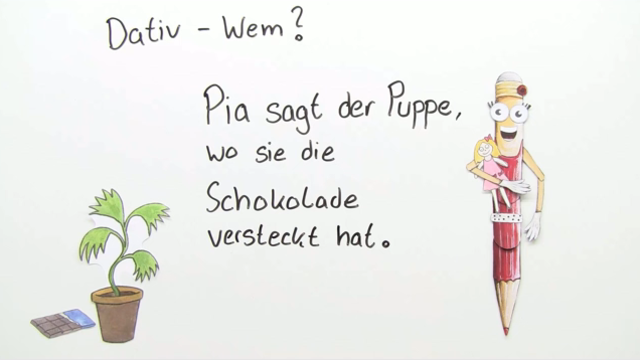 Dativ – Wem?
Pia sagt der Puppe,
wo sie die
Schokolade
versteckt hat.